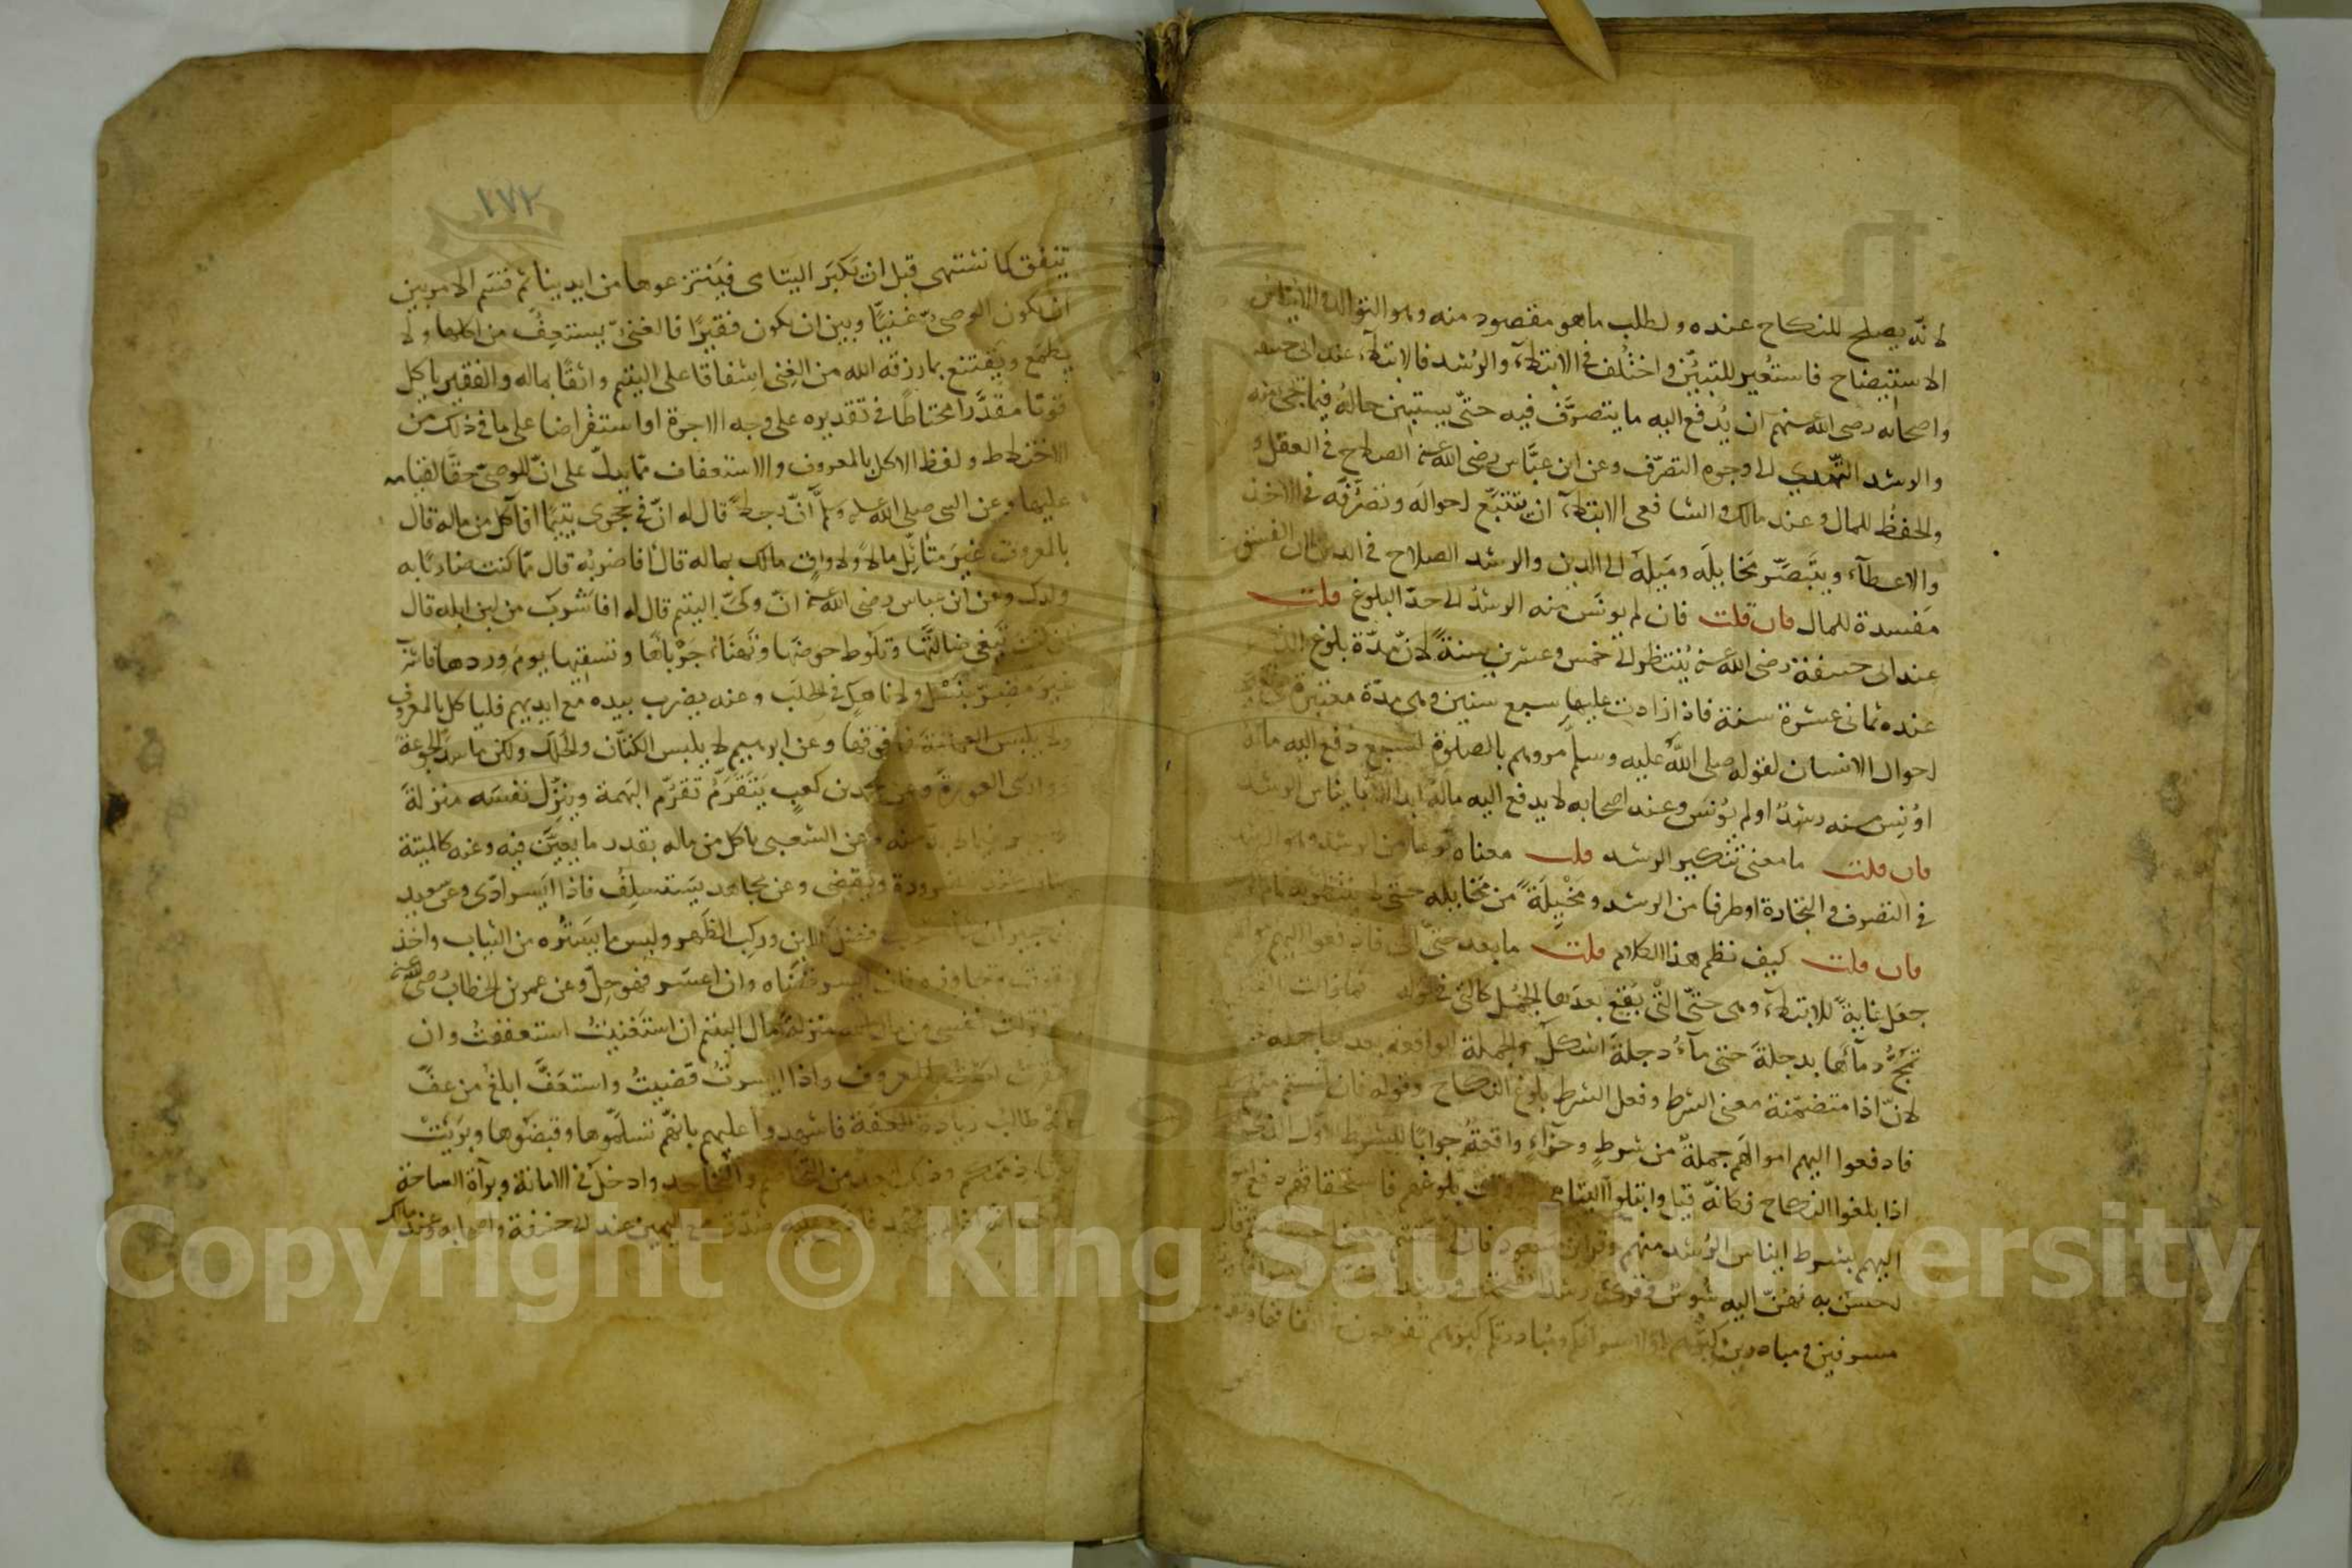 لانه يصلح للنكاح عنده ولطلب ما هو مقصود منه وهو التوالد والايناس
الاستيضاح فاستعير للتبيّن واختُلف في الابتلاء والرُشد فالابتلاء عند ابى حنيفة
واصحابه رضى الله عنهم ان يُدفع اليه ما يتصرّف فيه حتّى يستبين حالُه فيما يجئ منه
والرشد التهدّي الى وجوه التصرّف وعن ابن عبّاس رضى الله عنه الصلاح في العقل و
والحفظُ للمال وعند مالك والشافعى الابتلاء ان يتتبّع احواله وتصرّفه في الاخذ
والاعطآء ويتبصّر مَخايلَه ومَيله الى الدين والرشد الصلاح في الدين لان الفسق
مَفسدة للمال فان قلت فان لم يونَس منه الرشدُ الى حدّ البلوغ قلت
عند ابى حنيفة رضى الله عنه يُنتظر الى خمس وعشرين سنةً لانّ مدّة بلوغ
عنده ثمانى عشرة سنة فاذا زادت عليها سبع سنين وهى مدّة معتبرة في
احوال الانسان لقوله صلى الله عليه وسلّم مروهم بالصلوة لسبع دُفع اليه ماله
اوُنِس منه رشدٌ او لم يُونَس وعند اصحابه لا يدفع اليه مالُه ابدا الا بايناس الرشد
فان قلت ما معنى تنكير الرشد قلت معناه نوعا من الرشد وهو الرشد
في التصرف والتجارة او طرفا من الرشد ومَخيلَةً من مَخايله حتّى لا ينتظر به تمام
فان قلت كيف نظم هذا الكلام قلت ما بعد حتّى الى فادفعوا اليهم اموالهم
جُعل غايةً للابتلاء وهى حتّى التى تقع بعدها الجُمل كالتى في قوله فما زالت القتلى
تَمُجُّ دمآءَها بدجلةَ حتى مآءُ دجلةَ اشكلُ والجملة الواقعة بعدها جملة
لانّ اذا متضمّنة معنى الشرط وفعل الشرط بلوغ النكاح وقوله فان انستم منهم
فادفعوا اليهم اموالَهم جملةٌ من شرطٍ وجزآءٍ واقعةٌ جوابًا للشرط الاوّل الذى
اذا بلغوا النكاح فكانّه قيل وابتلوا اليتامى وقت بلوغهم فاستحقاقهم دفع اموالهم
اليهم بشرط ايناس الرُشد منهم وقرأ ابن مسعود فان احستم بمعنى احسستم قال
احسن به فهنّ اليه شُوسُ وقرئ رشدا بفتحتين
مسرفين ومبادرين كبرهم او لاسرافكم ومبادرتكم كبرهم تفرطون في انفاقها وتقولون
١٧٢
ننفق كما نشتهى قبل ان يَكبَر اليتامى فيَنتزعوها من ايدينا ثم قسم الامر بين
ان يكون الوصىّ غنيًّا وبين ان يكون فقيرًا فالغنىّ يستعِفُّ من اكلها ولا
يطمَع ويقتنع بما رزقه الله من الغِنى اِشفاقا على اليتيم وابقآءً بماله والفقير ياكل
قوتًا مقدَّرا محتاطًا في تقديره على وجه الاجرة او استقراضا على ما في ذلك من
الاختلاف ولفظ الاكل بالمعروف والاستعفاف ممّا يدلّ على انّ للوصىّ حقًّا لقيامه
عليها وعن النبى صلى الله عليه وسلّم انّ رجلاً قال له انّ في حَجرى يتيمًا افآكل من ماله قال
بالمعروف غيرَ متأثِّل مالاً ولا واقٍ مالك بماله قال افاضربُه قال ممّا كنت ضاربًا به
ولدك وعن ابن عباس رضى الله عنه انّ ولىَّ اليتيم قال له افاشرَب من لبن ابله قال
ان كنت تَبغى ضالّتَها وتَلُوط حوضَها وتَهنَأ جَرْباها وتسقيها يومَ وِردها فاشرب
غيرَ مضرّ بنَسْل ولا ناهكٍ في الحَلَب وعنه يضرب بيده مع ايديهم فلياكل بالمعروف
ولا يلبس العمامة فما فوقها وعن ابرهيم لا يلبس الكتّان والحُلَل ولكن ما سدّ الجَوعةَ
ووارَى العورةَ وعن محمّد بن كعبٍ يَتَقَرَّمُ تقرّمَ البَهمة ويُنزِل نفسَه منزلةَ
الاجير فيما لا بدّ منه وعن الشعبى ياكل من ماله بقدر ما يعين فيه وعنه كالميتة
يتناول عند الضرورة ويقضى وعن مجاهد يَستسلِفُ فاذا ايسر ادّى وعن سعيد
بن جبير ان شاء شرب فضلَ اللبن وركب الظَهر ولبس ما يَستُره من الثياب واخذ
القوت ولا يجاوزه فان ايسر قضاه وان اعسَر فهو حِلّ وعن عمر بن الخطاب رضى الله عنه
انزلت نفسى من مال الله منزلةَ مال اليتيم ان استَغنيتُ استعففتُ وان
افتقرت اكلت بالمعروف واذا ايسرتُ قضيتُ واستعَفّ ابلغُ من عفّ
كانّه طالبُ زيادة العفّة فاشهدوا عليهم بانّهم تسلّموها وقبضُوها وبَرِئتْ
عنها ذممكم وذلك ابعد من التخاصم والتجاحد وادخلُ في الامانة وبرآة الساحة
فادّعى عليه صُدّق مع اليمين عند ابى حنيفة واصحابه وعند مالك
Copyright © King Saud University